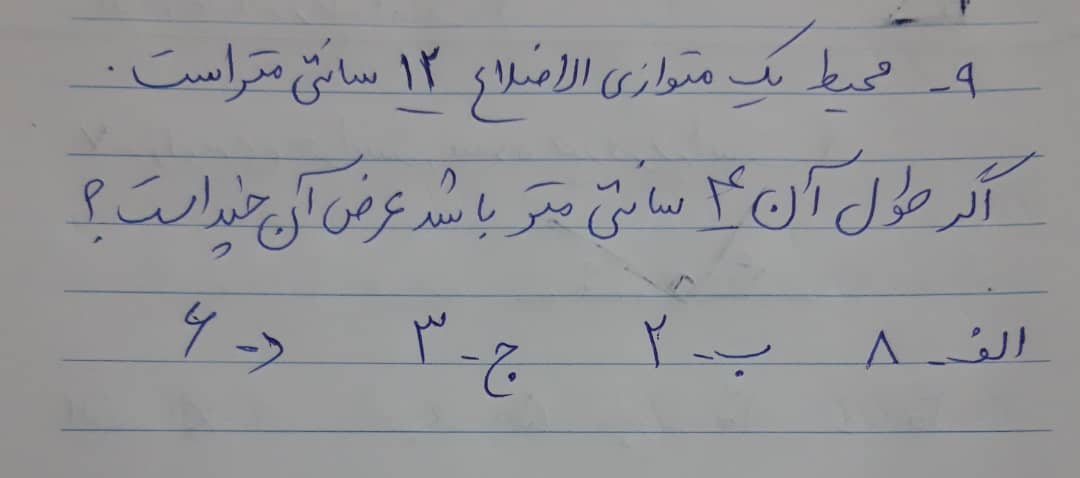 ۹- محیط یک متوازی الاضلاع ۱۲ سانتی متر است.
اگر طول آن ۴ سانتی متر باشد عرض آن چند است؟
الف- ۸ ب- ۲ ج- ۳ د- ۶